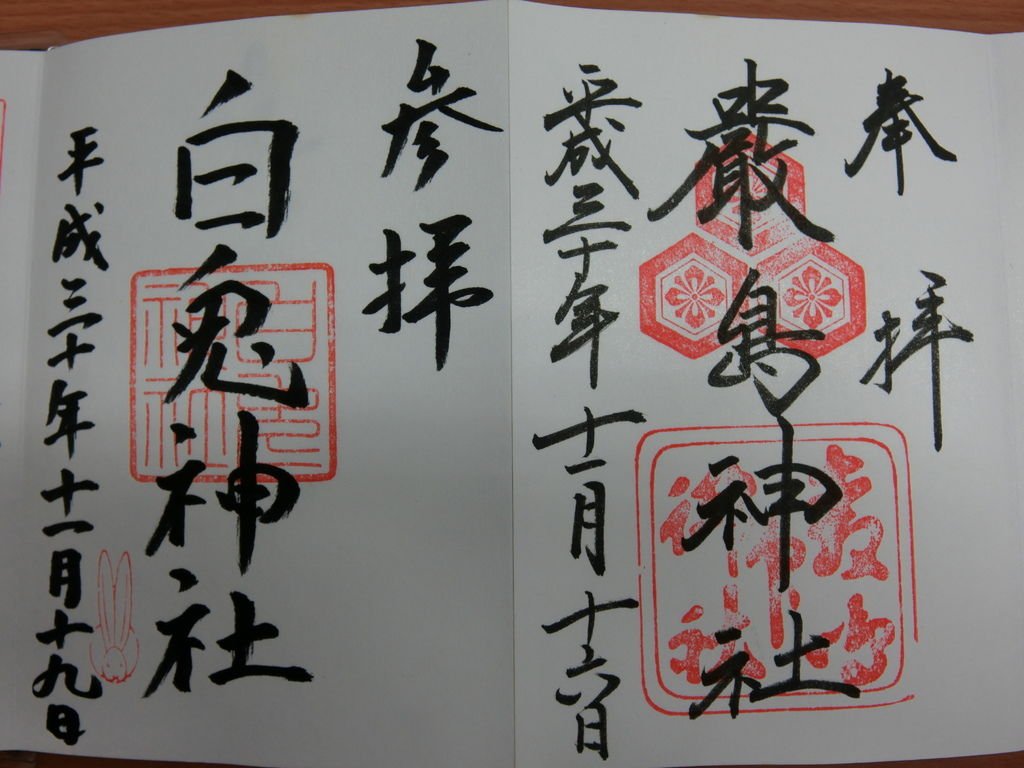 奉拝
嚴島神社
平成三十年十一月十六日
嚴島神社
参拝
白兎神社
平成三十年十一月十九日